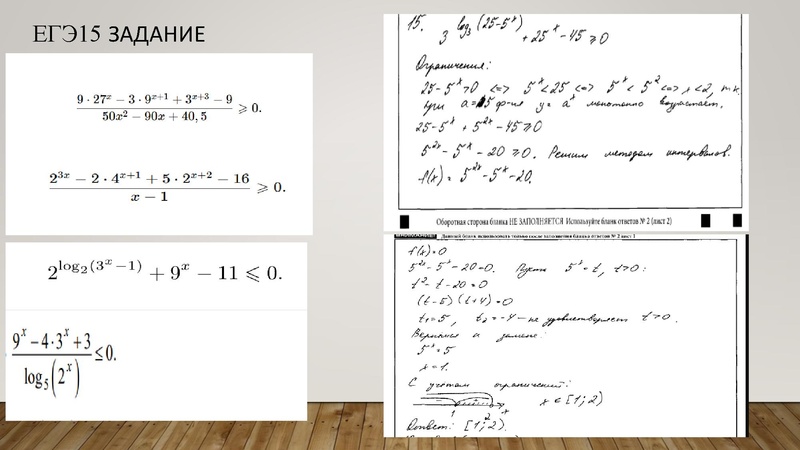 ЕГЭ15 ЗАДАНИЕ
(9·27^x − 3·9^(x+1) + 3^(x+3) − 9)/(50x² − 90x + 40,5) ⩾ 0.
(2^(3x) − 2·4^(x+1) + 5·2^(x+2) − 16)/(x − 1) ⩾ 0.
2^(log₂(3^x−1)) + 9^x − 11 ⩽ 0.
(9^x − 4·3^x + 3)/(log₅(2^x)) ≤ 0.
15. 3^(log₃(25−5^x)) + 25^x − 45 ⩾ 0
Ограничения:
25 − 5^x > 0 <=> 5^x < 25 <=> 5^x < 5² <=> x < 2, т.к.
при a = 5 ф-ия y = a^x монотонно возрастает.
25 − 5^x + 5^(2x) − 45 ⩾ 0
5^(2x) − 5^x − 20 ⩾ 0. Решим методом интервалов.
f(x) = 5^(2x) − 5^x − 20.
Оборотная сторона бланка НЕ ЗАПОЛНЯЕТСЯ Используйте бланк ответов № 2 (лист 2)
Данный бланк использовать только после заполнения бланка ответов № 2 лист 1
f(x) = 0
5^(2x) − 5^x − 20 = 0. Пусть 5^x = t, t > 0:
t² − t − 20 = 0
(t − 5)(t + 4) = 0
t₁ = 5, t₂ = −4 – не удовлетворяет t > 0.
Вернемся к замене:
5^x = 5
x = 1.
С учётом ограничений:
1 2 x x ∈ [1; 2)
Ответ: [1; 2).